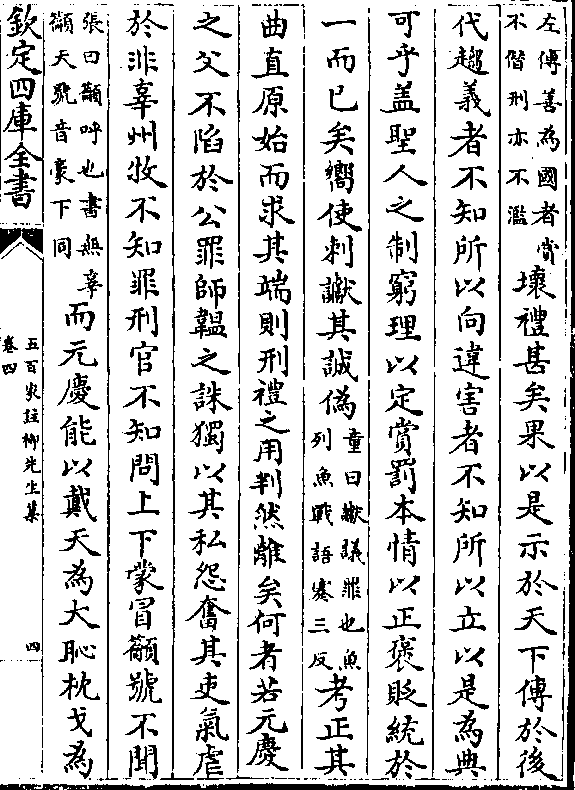 左傳善為國者賞
不僭刑亦不濫
壞禮甚矣果以是示於天下傳於後
代趨義者不知所以向違害者不知所以立以是為典
可乎盖聖人之制窮理以定賞罰本情以正褒貶統於
一而已矣嚮使刺讞其誠偽
童曰讞議罪也魚
列魚戰語蹇三反
考正其
曲直原始而求其端則刑禮之用判然離矣何者若元慶
之父不䧟於公罪師韞之誅獨以其私怨奮其吏氣虐
於非辜州牧不知罪刑官不知問上下蒙冒籲號不聞
張曰籲呼也書無辜
籲天號音豪下同
而元慶能以戴天為大恥枕戈為
欽定四庫全書
五百家註柳先生集
卷四
四